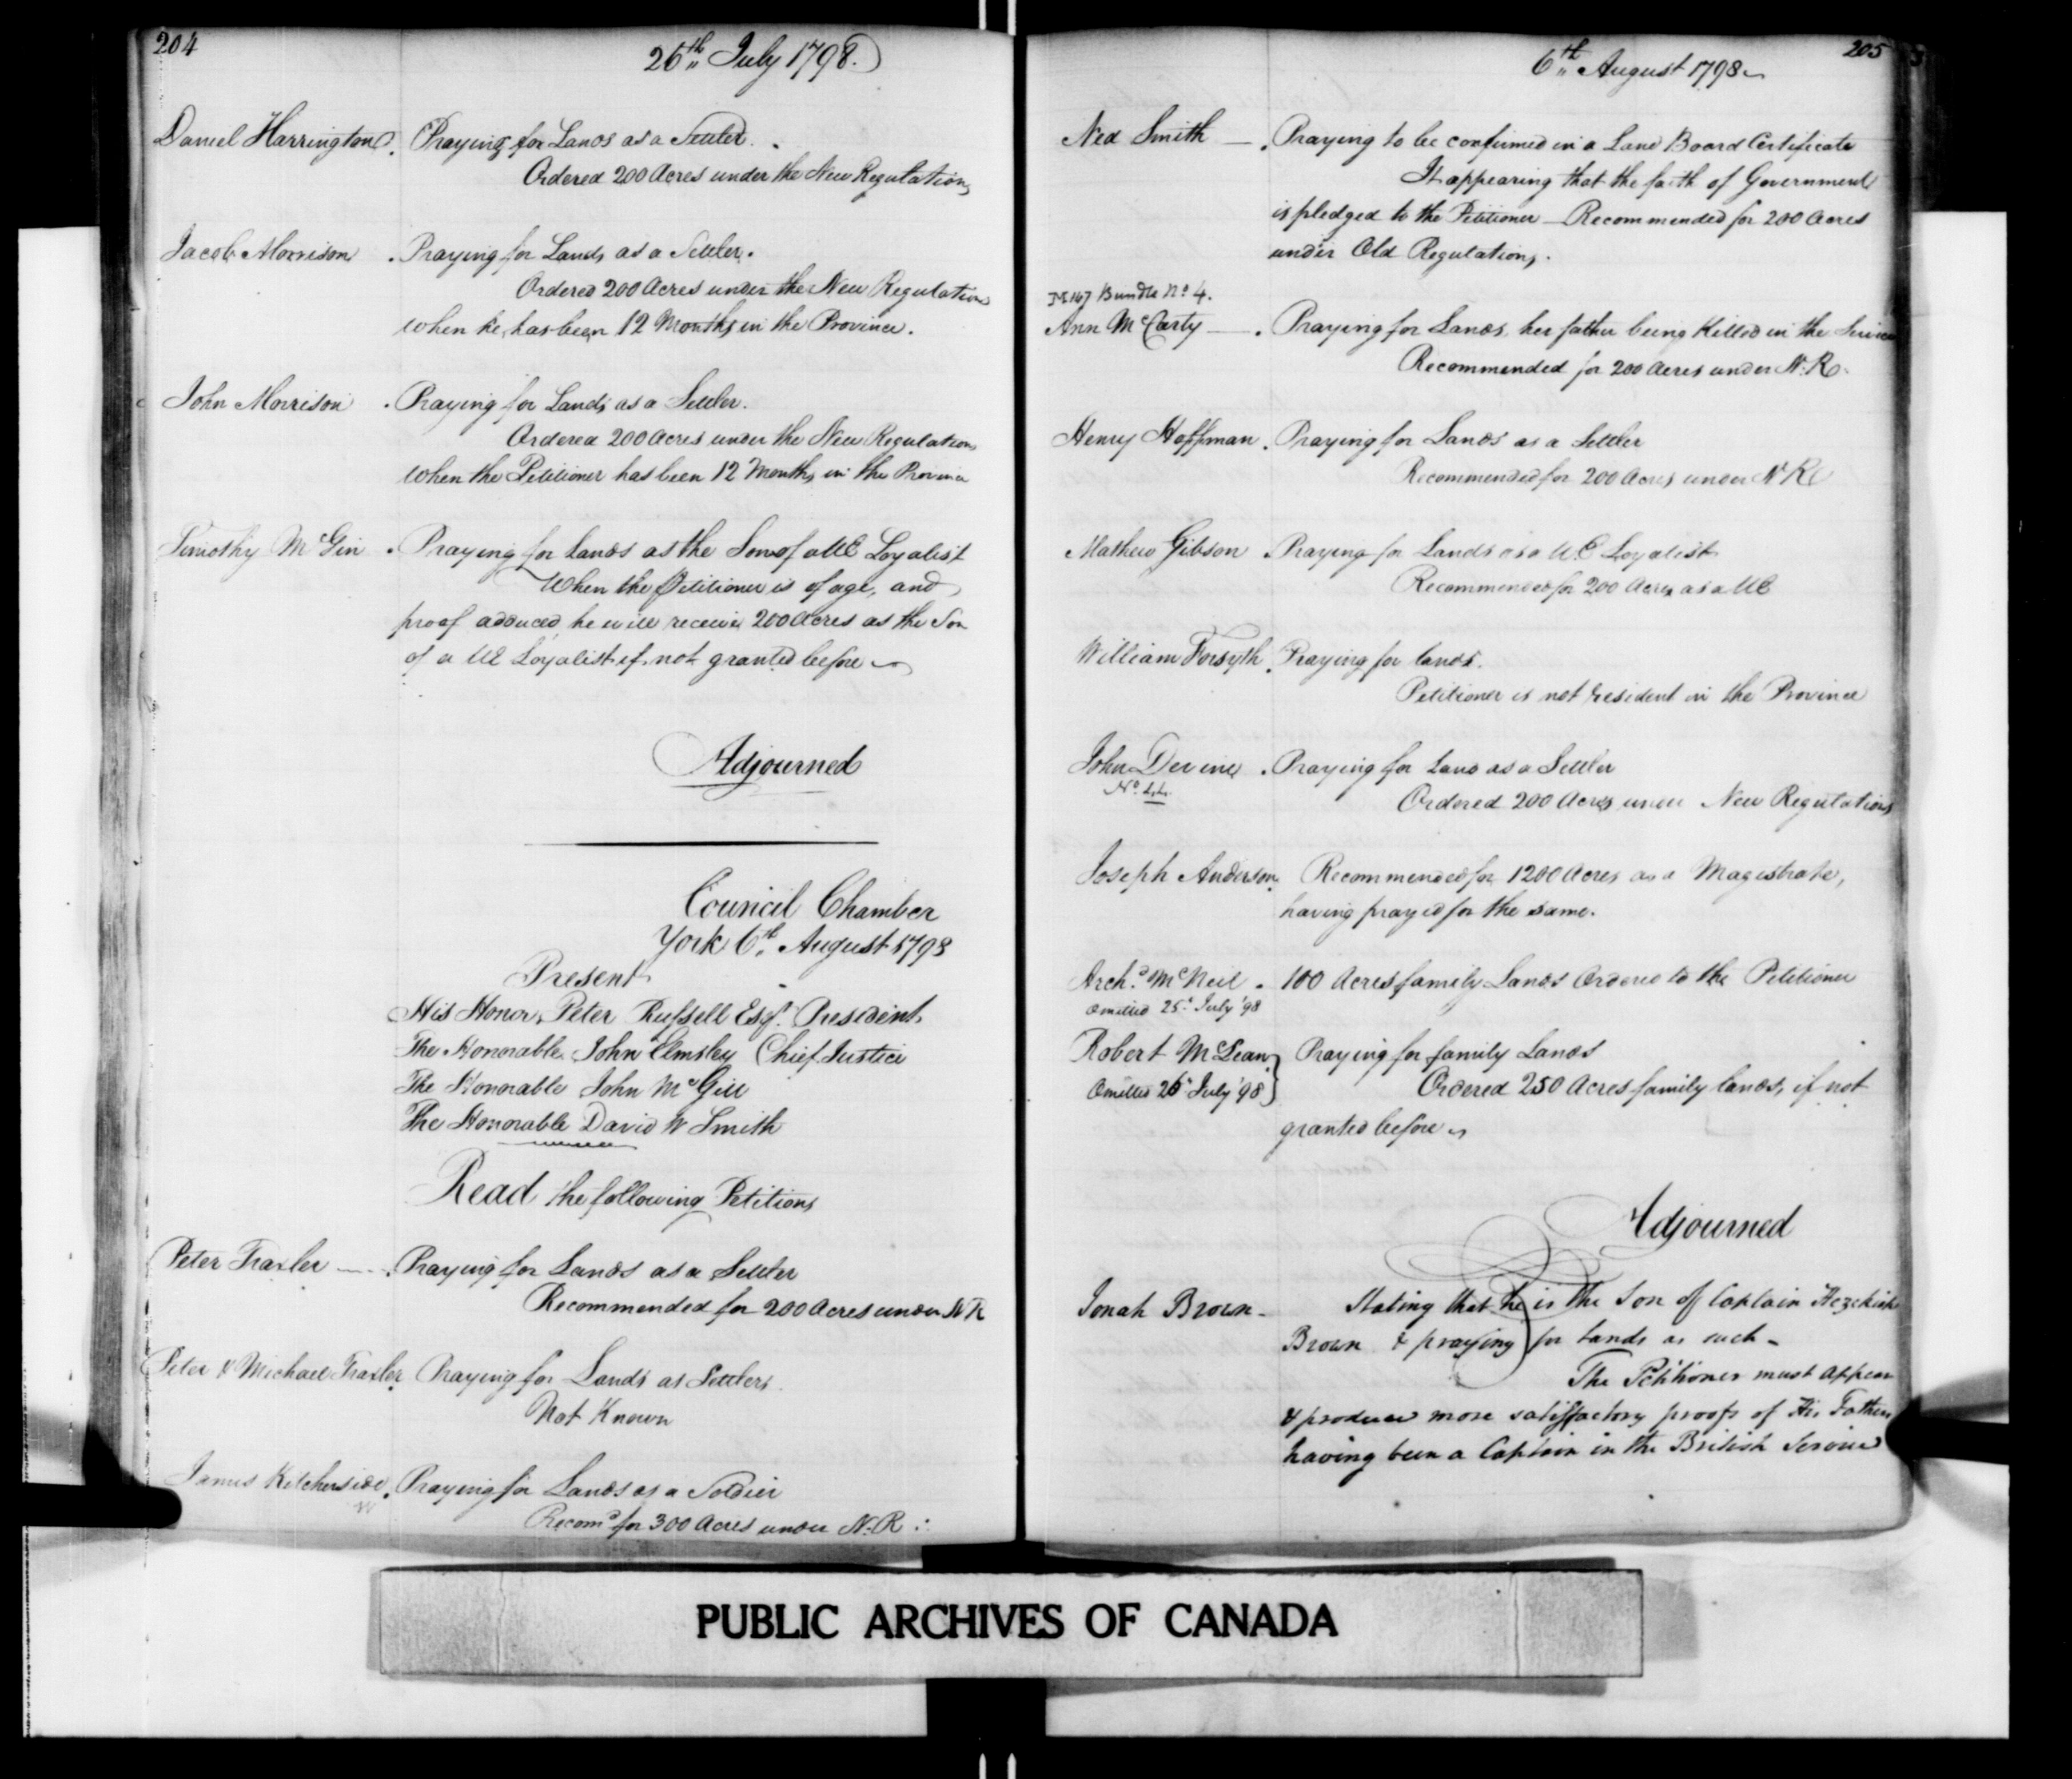 204
26th July 1798.
Daniel Harrington. Praying for Lands as a Settler.
Ordered 200 Acres under the New Regulations
Jacob Morrison. Praying for Lands as a Settler.
Ordered 200 Acres under the New Regulations
when he has been 12 Months in the Province.
John Morrison. Praying for Lands as a Settler.
Ordered 200 Acres under the New Regulations
when the Petitioner has been 12 Months in the Province
Timothy McGin. Praying for Lands as the Son of a UE Loyalist
When the Petitioner is of age, and
proof adduced he will receive 200 Acres as the Son
of a UE Loyalist if not granted before
Adjourned
Council Chamber
York 6th August 1798
Present
His Honor Peter Russell Esqr. President
The Honorable John Elmsley Chief Justice
The Honorable John McGill
The Honorable David W Smith
Read the following Petitions
Peter Traxler - Praying for Lands as a Settler
Recommended for 200 Acres under N R
Peter & Michael Traxler. Praying for Lands as Settlers.
Not Known
James Kitcherside. Praying for Lands as a Soldier
Recomd for 300 Acres under N. R.
205
6th August 1798
Ned Smith — . Praying to be confirmed in a Land Board Certificate
It appearing that the faith of Government
is pledged to the Petitioner — Recommended for 200 Acres
under Old Regulations.
M 167 Bundle No 4.
Ann McCarty — . Praying for Lands, her father being Killed in the Service
Recommended for 200 Acres under N. R.
Henry Hoffman. Praying for Lands as a Settler
Recommended for 200 Acres under N R
Mathew Gibson. Praying for Lands as a U.E Loyalist
Recommended for 200 Acres as a UE
William Forsyth. Praying for lands.
Petitioner is not resident in the Province
John Devine. Praying for Land as a Settler
No.
Ordered 200 Acres under New Regulations
Joseph Anderson. Recommended for 1200 Acres as a Magistrate,
having prayed for the same.
Archd. McNeil. 100 Acres family Lands Ordered to the Petitioner
Omitted 25. July '98
Robert McLean } Praying for family Lands
Omitted 26 July '98 } Ordered 250 Acres family lands, if not
granted before
Adjourned
Jonah Brown - Stating that he is the Son of Captain Hezekiah
Brown & praying for Lands as such -
The Petitioner must appear
& produce more satisfactory proofs of His Father
having been a Captain in the British Service
PUBLIC ARCHIVES OF CANADA